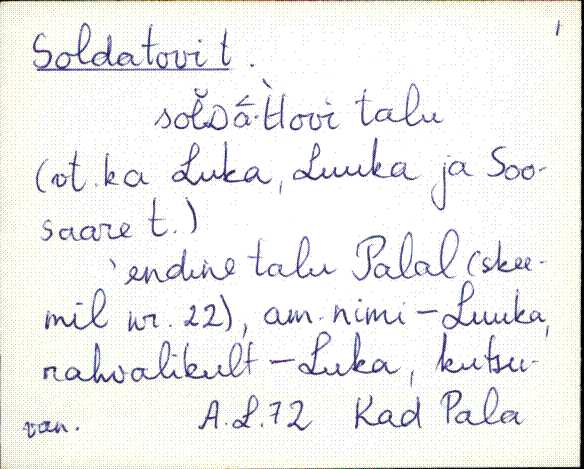 1
Soldatovi t.
soĺDà·ttovi talu
(vt. ka Luka, Luuka ja Soo-
saare t.)
`endine talu Palal (skee-
mil nr. 22), am. nimi – Luuka,
rahvalikult – Luka, kutsu-
van. A.L.72 Kad Pala